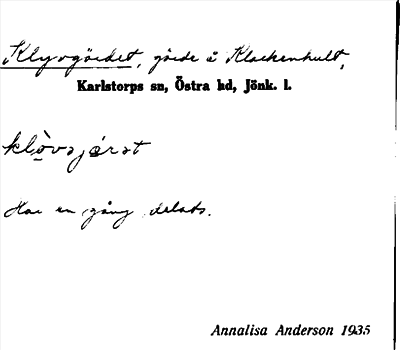 Klyvgärdet, gärde å Klockenhult,
Karlstorps sn, Östra hd, Jönk. l.
klòvsjǽrət
Har en gång delats.
Annalisa Anderson 1935